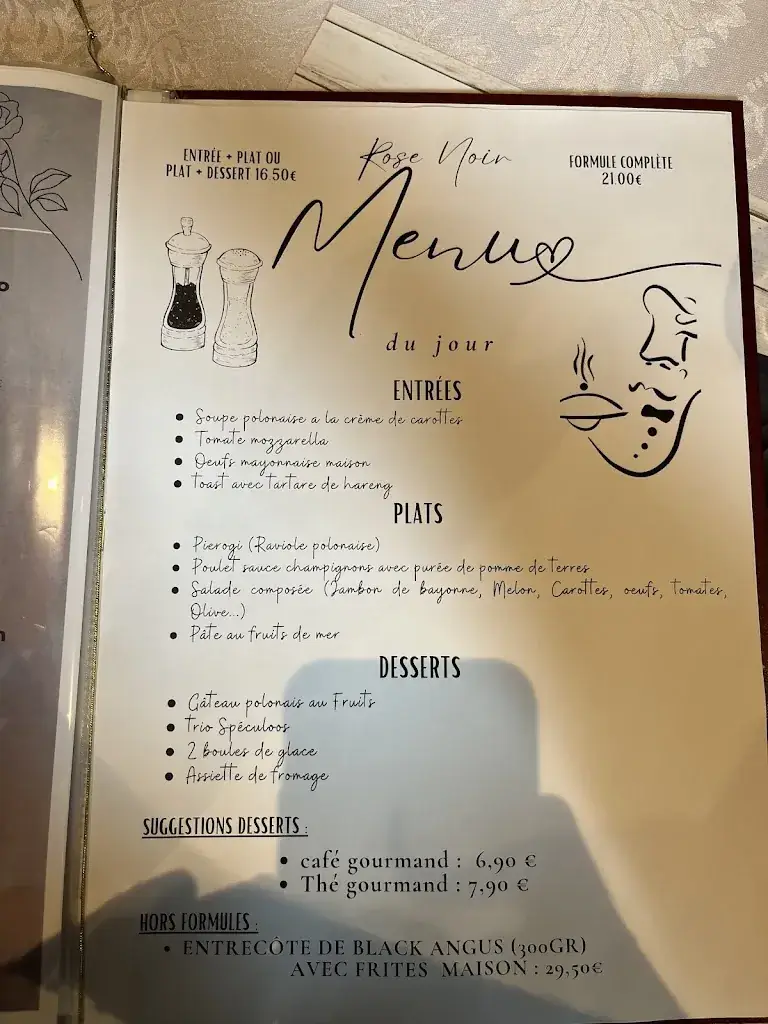 ENTRÉE + PLAT OU
PLAT + DESSERT 16.50€
Rose Noir
FORMULE COMPLÈTE
21.00€
Menu
du jour
ENTRÉES
• Soupe polonaise a la crème de carottes
• Tomate mozzarella
• Oeufs mayonnaise maison
• Toast avec tartare de hareng
PLATS
• Pierogi (Raviole polonaise)
• Poulet sauce champignons avec purée de pomme de terres
• Salade composée (Jambon de bayonne, Melon, Carottes, oeufs, tomates,
Olive...)
• Pâte au fruits de mer
DESSERTS
• Gâteau polonais au Fruits
• Trio Spéculoos
• 2 boules de glace
• Assiette de fromage
SUGGESTIONS DESSERTS :
• café gourmand : 6,90 €
• Thé gourmand : 7,90 €
HORS FORMULES :
• ENTRECÔTE DE BLACK ANGUS (300GR)
AVEC FRITES MAISON : 29,50€